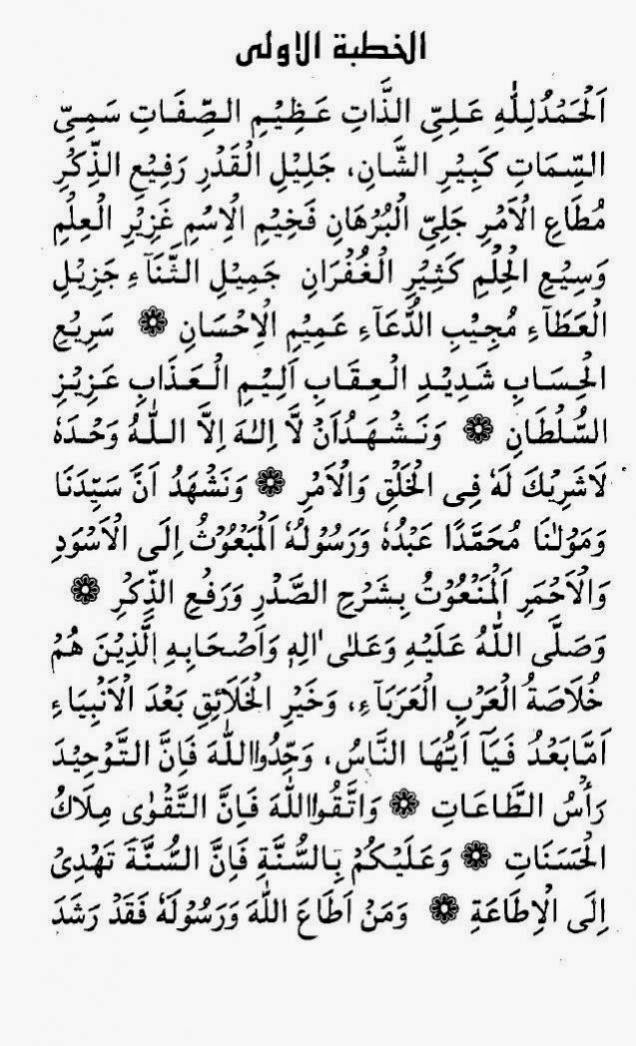 الخطبة الاولى
اَلْحَمْدُلِلّٰهِ عَلِيِّ الذَّاتِ عَظِيْمِ الصِّفَاتِ سَمِيِّ
السِّمَاتِ كَبِيْرِ الشَّانِ، جَلِيْلِ الْقَدْرِ رَفِيْعِ الذِّكْرِ
مُطَاعِ الْاَمْرِ جَلِيِّ الْبُرْهَانِ فَخِيْمِ الْاِسْمِ غَزِيْرِ الْعِلْمِ
وَسِيْعِ الْحِلْمِ كَثِيْرِ الْغُفْرَانِ جَمِيْلِ الثَّنَآءِ جَزِيْلِ
الْعَطَآءِ مُجِيْبِ الدُّعَآءِ عَمِيْمِ الْاِحْسَانِ ۞ سَرِيْعِ
الْحِسَابِ شَدِيْدِ الْعِقَابِ اَلِيْمِ الْعَذَابِ عَزِيْزِ
السُّلْطَانِ ۞ وَنَشْهَدُاَنْ لَّا اِلٰهَ اِلَّا اللّٰهُ وَحْدَهٗ
لَاشَرِيْكَ لَهٗ فِى الْخَلْقِ وَالْاَمْرِ ۞ وَنَشْهَدُ اَنَّ سَيِّدَنَا
وَمَوْلٰنَا مُحَمَّدًا عَبْدُهٗ وَرَسُوْلُهُ الْمَبْعُوْثُ اِلَى الْاَسْوَدِ
وَالْاَحْمَرِ اَلْمَنْعُوْتُ بِشَرْحِ الصَّدْرِ وَرَفْعِ الذِّكْرِ ۞
وَصَلَّى اللّٰهُ عَلَيْهِ وَعَلٰى اٰلِهٖ وَاَصْحَابِهِ الَّذِيْنَ هُمْ
خُلَاصَةُ الْعَرَبِ الْعَرَبَآءِ، وَخَيْرِ الْخَلَائِقِ بَعْدَ الْاَنْبِيَاءِ
اَمَّابَعْدُ فَيَآ اَيُّهَا النَّاسُ، وَحِّدُوااللّٰهَ فَاِنَّ التَّوْحِيْدَ
رَأْسُ الطَّاعَاتِ ۞ وَاتَّقُوااللّٰهَ فَاِنَّ التَّقْوٰى مِلَاكُ
الْحَسَنَاتِ ۞ وَعَلَيْكُمْ بِالسُّنَّةِ فَاِنَّ السُّنَّةَ تَهْدِىْ
اِلَى الْاِطَاعَةِ ۞ وَمَنْ اَطَاعَ اللّٰهَ وَرَسُوْلَهٗ فَقَدْ رَشَدَ